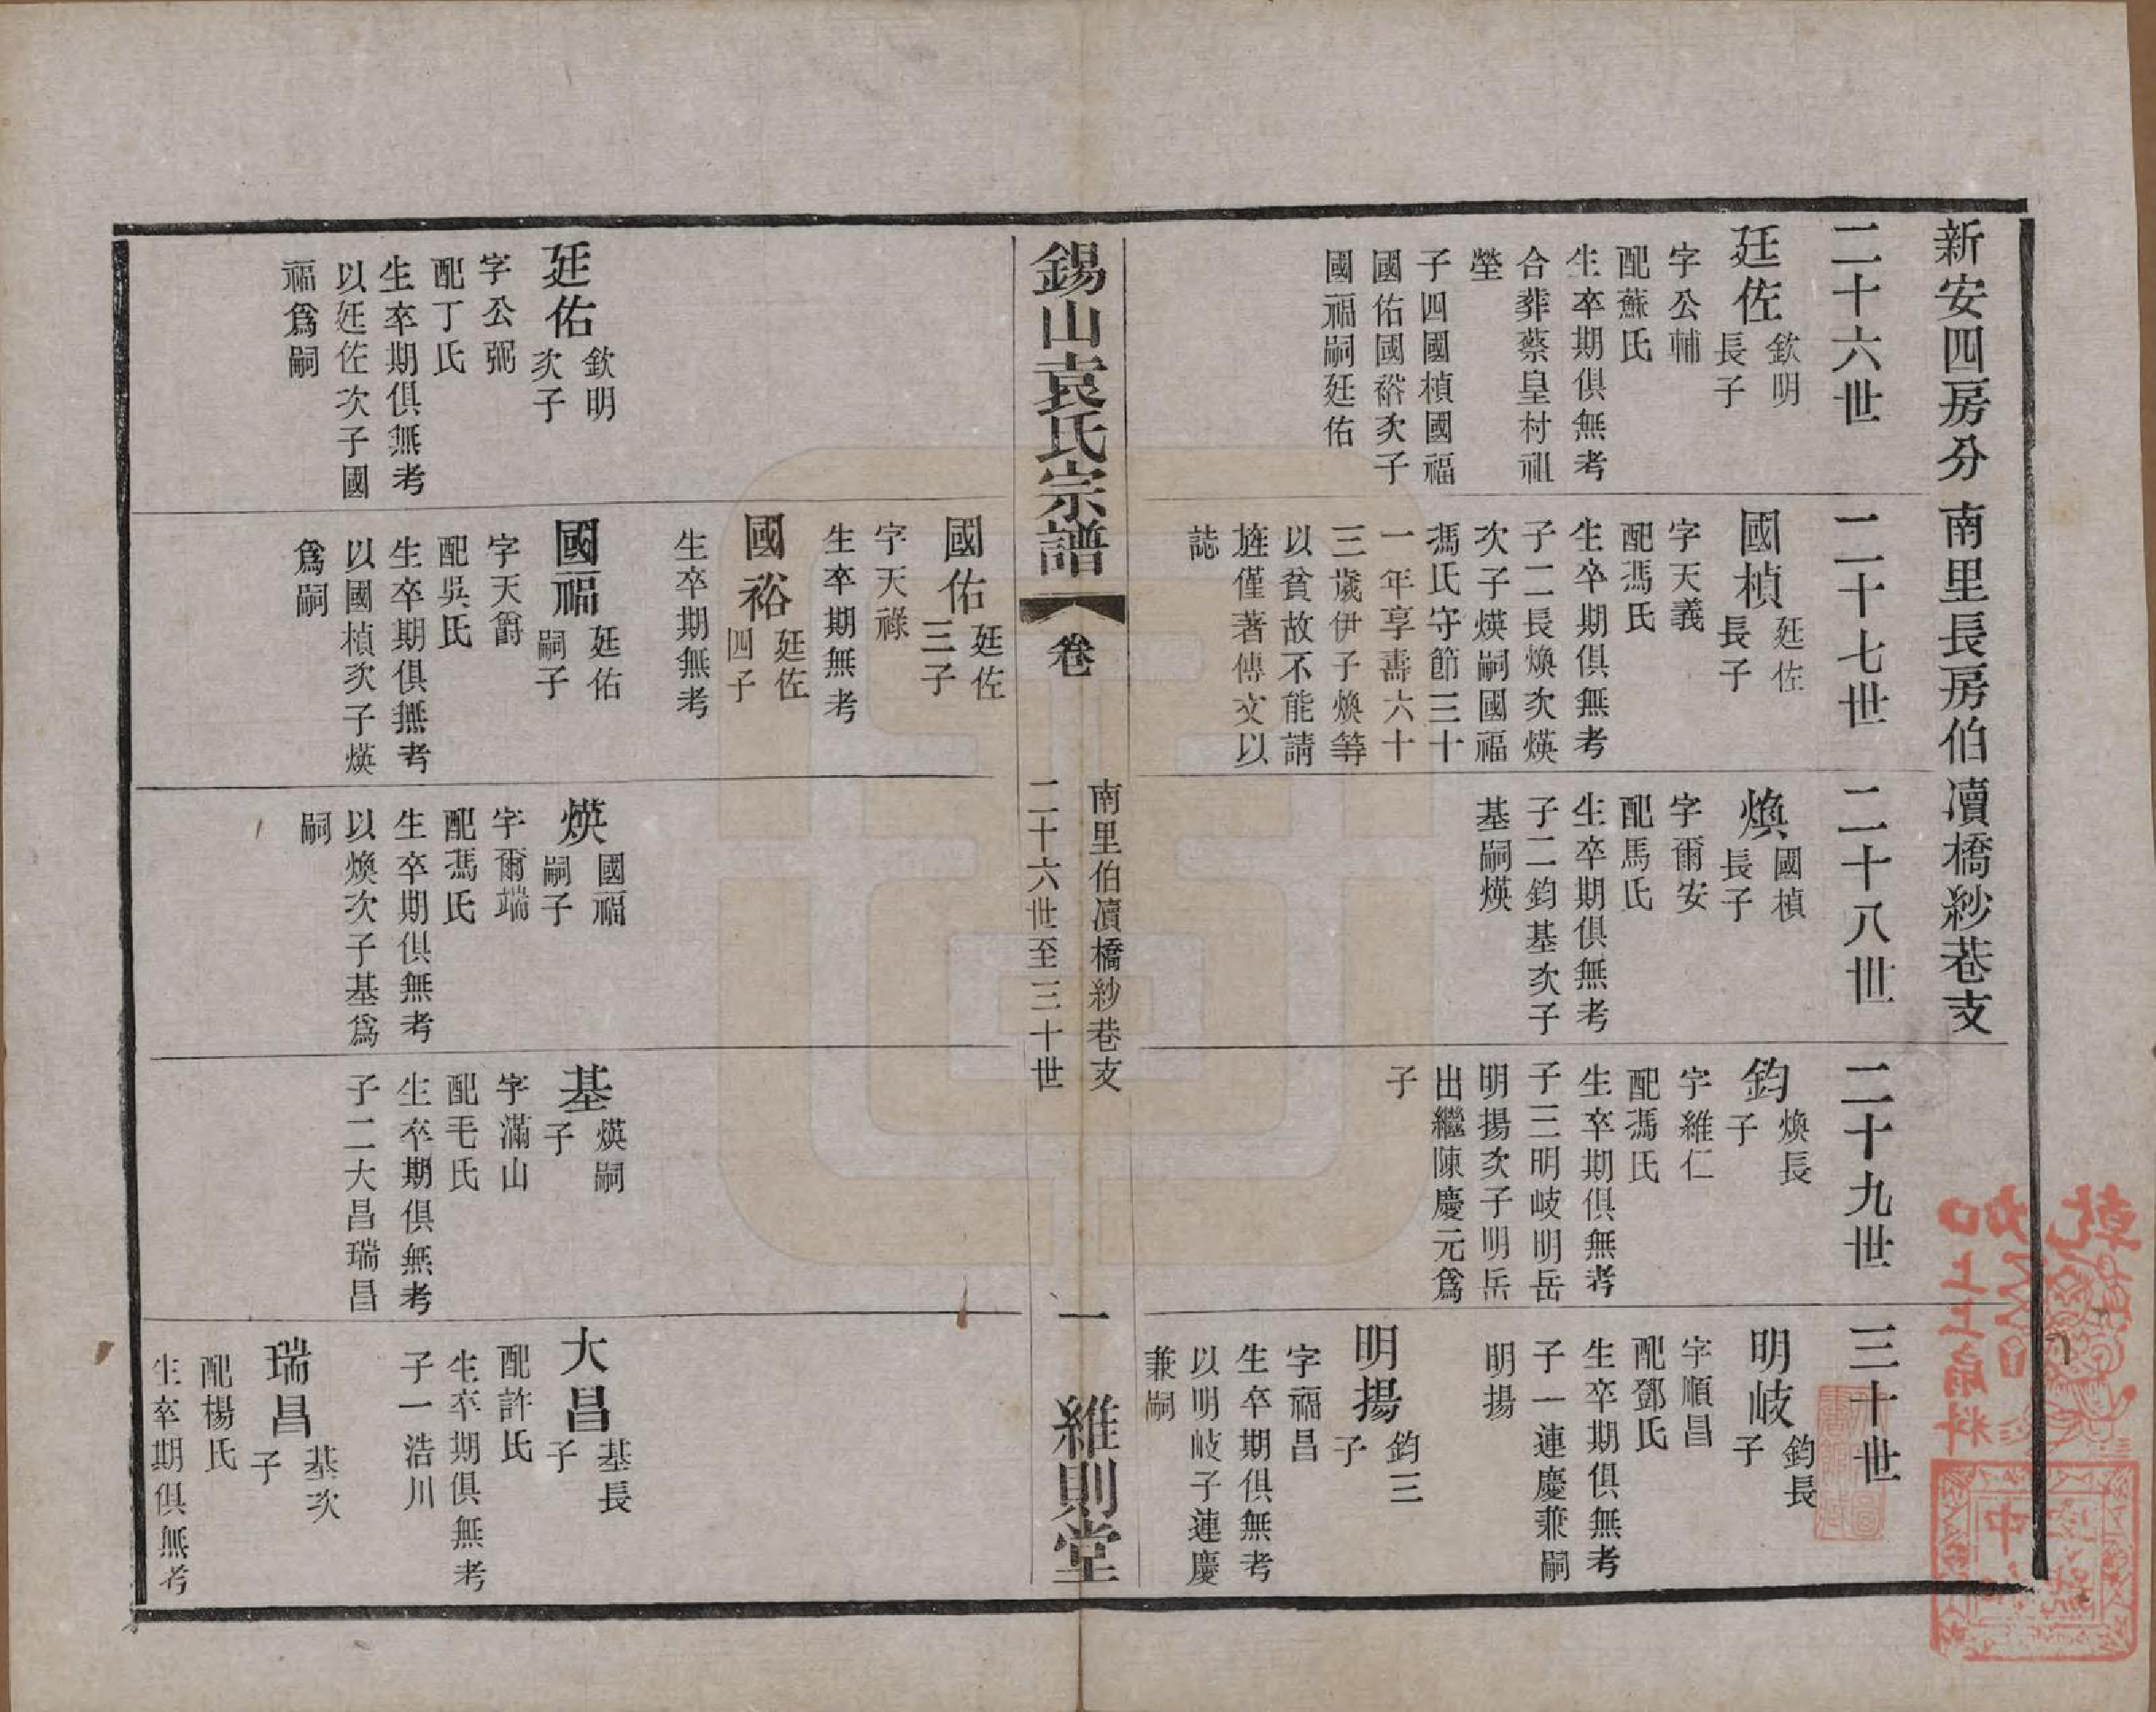 新安四房分南里長房伯瀆橋紗巷支
二十六世
廷佐
欽明
長子
字公輔
配蘇氏
生卒期俱無考
合葬蔡皇村祖
塋
子四國楨國福
國佑國裕次子
國福嗣廷佑
二十七世
國楨
廷佐
長子
字天義
配馮氏
生卒期俱無考
子二長煥次煐
次子煐嗣國福
馮氏守節三十
一年享壽六十
三歲伊子煥等
以貧故不能請
旌僅著傳文以
誌
二十八世
煥
國楨
長子
字爾安
配馬氏
生卒期俱無考
子二鈞基次子
基嗣煐
二十九世
鈞
煥長
子
字維仁
配馮氏
生卒期俱無考
子三明岐明岳
明揚次子明岳
出繼陳慶元爲
子
三十世
明岐
鈞長
子
字順昌
配鄧氏
生卒期俱無考
子一連慶兼嗣
明揚
明揚
鈞三
子
字福昌
生卒期俱無考
以明岐子連慶
兼嗣
錫山袁氏宗譜
卷
南里伯瀆橋紗巷支
二十六世至三十世
一
維則堂
廷佑
欽明
次子
字公弼
配丁氏
生卒期俱無考
以廷佐次子國
福爲嗣
國佑
廷佐
三子
字天祿
生卒期無考
國裕
廷佐
四子
生卒期無考
國福
廷佑
嗣子
字天爵
配吳氏
生卒期俱無考
以國楨次子煐
爲嗣
煐
國福
嗣子
字爾端
配馮氏
生卒期俱無考
以煥次子基爲
嗣
基
煐嗣
子
字滿山
配毛氏
生卒期俱無考
子二大昌瑞昌
大昌
基長
子
配許氏
生卒期俱無考
子一浩川
瑞昌
基次
子
配楊氏
生卒期俱無考